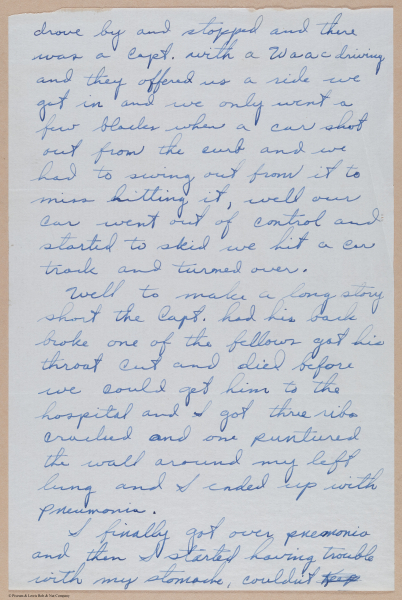 drove by and stopped and there
was a Capt. with a Waac driving
and they offered us a ride we
got in and we only went a
few blocks when a car shot
out from the curb and we
had to swing out from it to
miss hitting it, well our
car went out of control and
started to skid we hit a car
track and turned over.
Well to make a long story
short the Capt. had his back
broke one of the fellows got his
throat cut and died before
we could get him to the
hospital and I got three ribs
cracked and one puntured
the wall around my left
lung and I ended up with
pneumonia.
I finally got over pnemonia
and then I started having trouble
with my stomache, couldn't